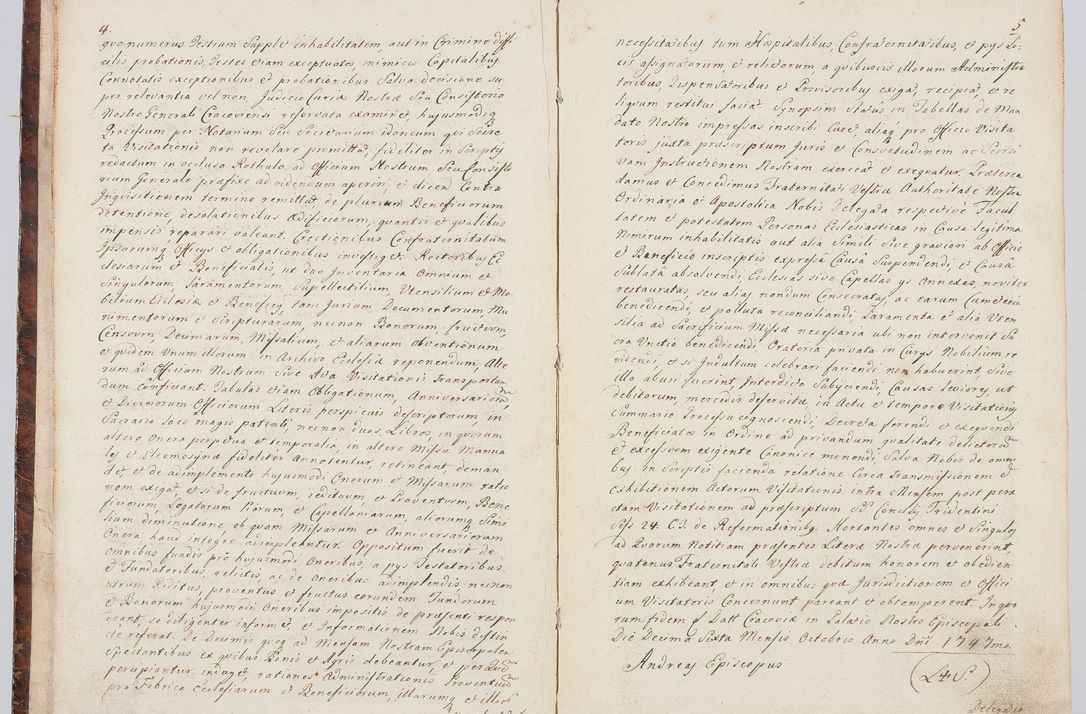 4.
quo numerus Testium Supplet inhabilitatem, aut in Crimine diffi
cilis probationis, Testes etiam exceptuatos, inimicis Capitalibus
Connotatis exceptionibus et probationibus Salva decisione su
per relevantia vel non, Judicio Curiæ Nostræ Seu Consistorio
Nostro Generali Cracoviensi reservata examinet hujusmodiq
Processum per Notarium Seu Secretarium idoneum qui Secre
ta Visitationis non revelare promittat, fideliter in Scriptis
redactum in occluso Rothulo, ad Officium Nostrum Seu Consisto
rium Generale præfixo ad videndum aperiri et dicend Contra
Inquisitionem termino remittat de plurium Beneficiorum
detentione, desolationibus ædificiorum, quanti et qualibus
impensis reparari valeant. Erectionibus Confraternitatum
Ipsarumq Officijs et obligationibus investiget. Rectoribus Ec
clesiarum et Beneficiatis, ut duo Inventaria Omnium et
Singulorum, Sacramentorum, Supellectilium, Utensilium et Mo
bilium Ecclesiæ et Beneficij, tam Jurium, Documentorum, Mu
nimentorum et Scripturarum, necnon Bonorum, fructuum,
Censuum, Decimarum Missalium, et aliarum obventionum
et quidem Unum illorum, in Archivo Ecclesiæ reponendum, Alte
rum ad Officium Nostrum Sive Acta Visitationis transportan
dum conficiant. Tabulas etiam Obligationum, Anniversariorũ
et Divinorum Officiorum Literis perspicuis descriptarum, in
Sacrario loco magis patenti, necnon duos Libros, in quorum
altero Onera perpetua et temporalia, in altero Missæ Manua
les et Eleemosynæ fideliter Annotentur, retineant, deman
det et de adimplemento hujusmodi Onerum et Missarum ratio
nem exigat et si de fructuum, redituum et Proventuum, Bene
ficiorum, Legatorum Piorum, et Capellaniarum, aliorumq Simi
lium diminutione ob quam Missarum et Anniversariorum
Onera haud integre adimpleantur. Oppositum fuerit de
omnibus fundis pro hujusmodi Oneribus, a pijs Testatoribus
et Fundatoribus, relictis, ac de Oneribus adimplendis, necnon
utrum Reditus, proventus et fructus eorundem Fundorum
et Bonorum hujusmodi Oneribus impositis de præsenti respon
deant, so diligenter informet, et Informationem Nobis destin
ate referat. De Decimis quoq ad Mensam Nostram Episcopalem
Spectantibus ex quibus Bonis et Agris debeantur, et per quos
percipiantur indaget rationes Administrationis Proventuum
pro Fabrica Ecclesiarum et Beneficiorum, illarumq et illorũ
5
necessitatibus tum Hospitalibus, Confraternitatibus, et pijs Lo-
cis assignatorum, et relictorum, a quibusvis illorum Administra
toribus, Dispensatoribus et Provisoribus exigat, recipiat, et re
liquum restitui faciat. Synopsim Status in Tabellas de Man
dato Nostro impressas inscribi Curet aliaq pro Officio Visita
toris juxta præscriptum Juris et Consvetudinem ac Seorsi
vam Instructionem Nostram exerceat et exequatur. Præterea
damus et Concedimus Fraternitati Vestræ Authoritate Nostra
Ordinaria et Apostolica Nobis Delegata respective Facul
tatem et potestatem Personas Ecclesiasticas in Causa legitima
Nimirum inhabilitatis aut alia Simili Sive graviori ab Officio
et Beneficio inscriptis expressa Causâ Suspendendi, et Causâ
Sublatâ absolvendi Ecclesias sive Capellas ijs Annexas, noviter
restauratas, seu alias nondum Consecratas, ac earum Cæmeteria
benedicendi, et polluta reconciliandi, Paramenta et alia Uten
silia ad Sacrificium Missæ necessaria ubi non intercenit Sa
cra Unctio benedicendi, Oratoria privata in Curijs Nobilium re
videndi, et si Indultum celebrari faciendi non habuerint, Sive
illo abusi fuerint, Interdicto Subijciendi, Causas leviores, ut
debitorum, mercedis deservitæ in Actu et tempore Visitationis
Summario Processu cognoscendi, Decreta ferendi et exequendi
Beneficiatos in Ordine ad privandum qualitate delictorũ
et excessuum exigente Canonice monendi, Salva Nobis de omni
bus in Scriptis facienda relatione Circa Transmissionem et
exhibitionem Actorum Visitationis intra Mensem post pera
ctam Visitationem ad præscriptum Sti Concilij Tridentini
Sess 24. C3. de Reformationibq. Hortantes omnes et Singulos
ad Quorum Notitiam præsentes Literæ Nostræ pervenerint,
quatenus Fraternitati Vestræ debitum honorem et obedien
tiam exhibeant et in omnibus quæ Jurisdictionem et Offici
um Visitatoris Concernunt pareant et obtemperent. In quo
rum fidem Datt Cracoviæ in Palatio Nostro Episcopali.
Die Decima Sexta Mensis Octobris Anno Dni 1747mo.
Andreas Episcopus
(L+S)